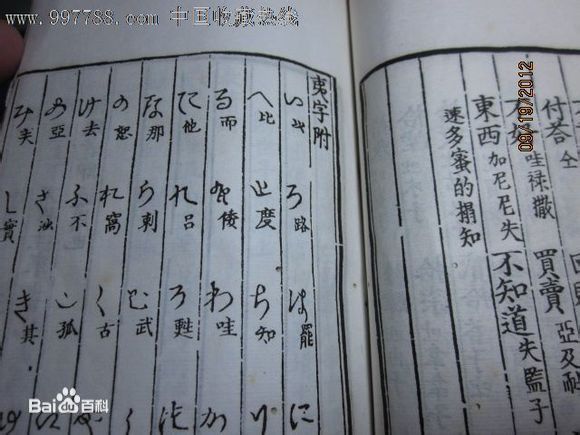 www.997788.com 中国收藏热线
09/19/2012
付荅 仝
不好 哇禄撒 買賣 亞及耐
東西 加尼尼失 不知道 失藍子
速多蜜的搨知
夷字附
い以 ろ路 は罷 に
へ比 と度 ち知 り
る而 を倭 わ哇 か
た他 れ呂 そ甦 つ
な那 ら剌 む武
の怒 お窩 く古
け去 ふ不 こ孤
あ亞 さ き其
み し實
Bai百科